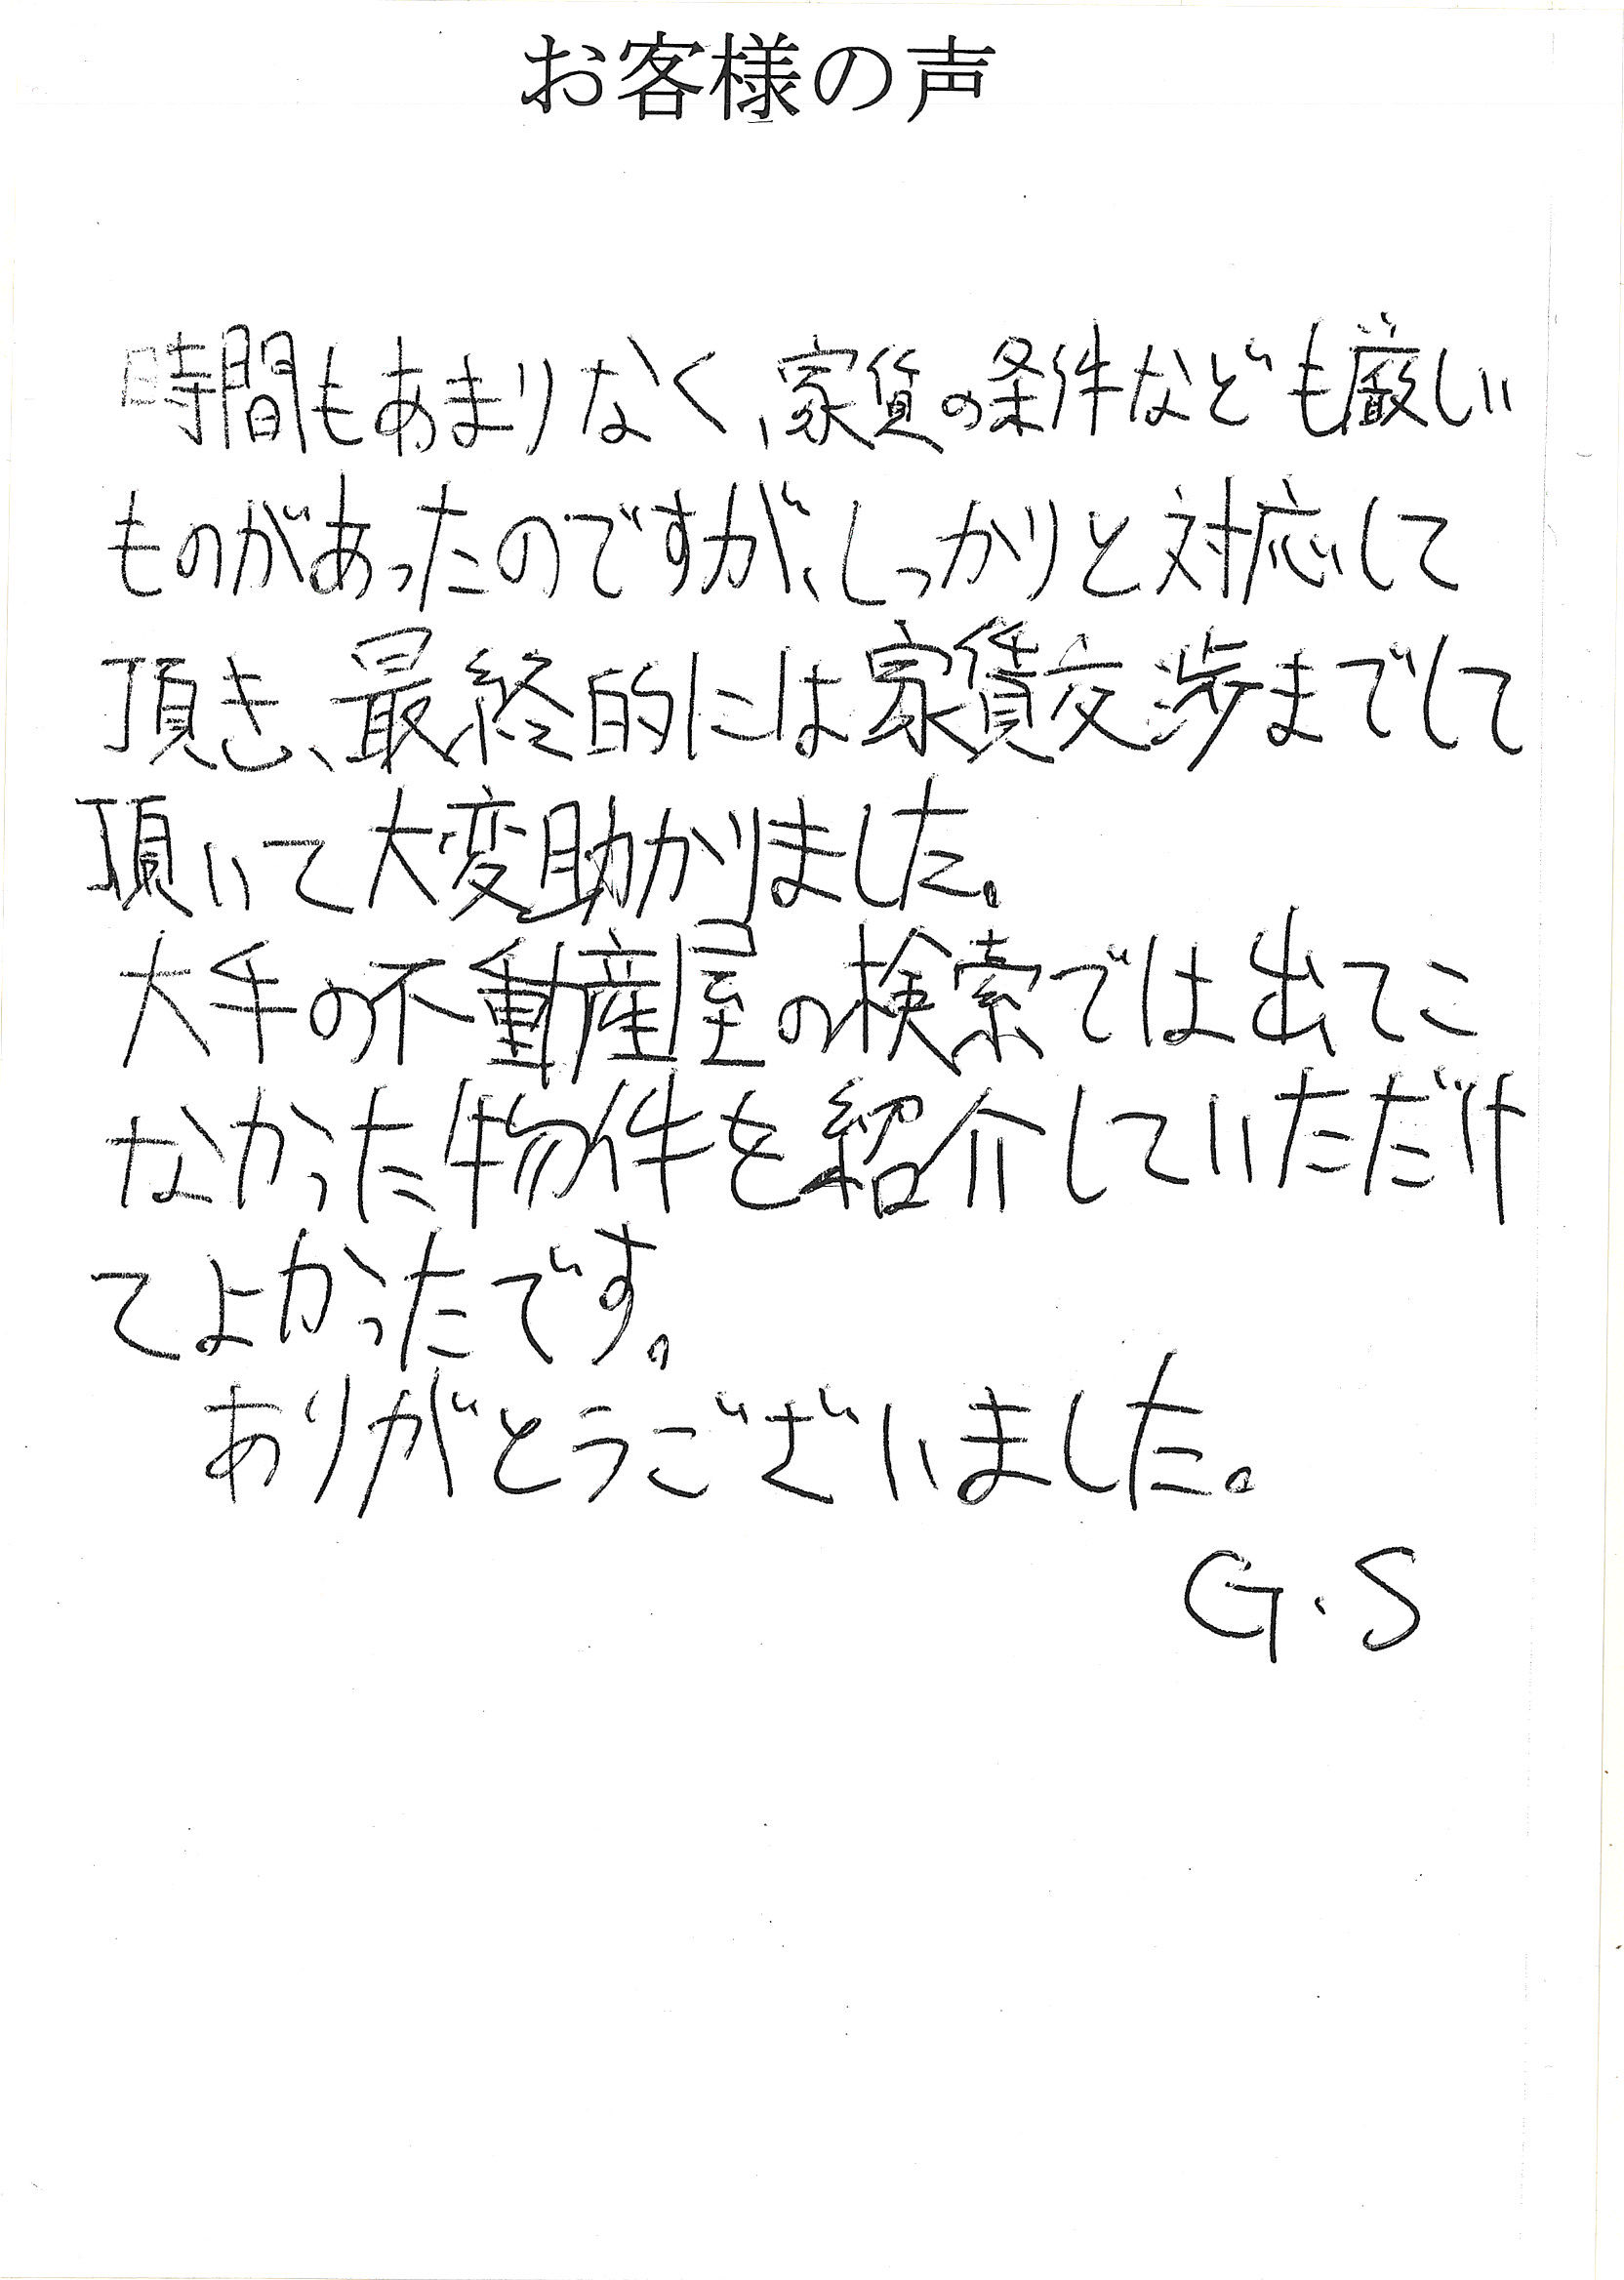 お客様の声
時間もあまりなく、家賃の条件なども厳しい
ものがあったのですが、しっかりと対応して
頂き、最終的には家賃交渉までして
頂いて大変助かりました。
大手の不動産屋の検索では出てこ
なかった物件を紹介していただけ
てよかったです。
ありがとうございました。
G.S